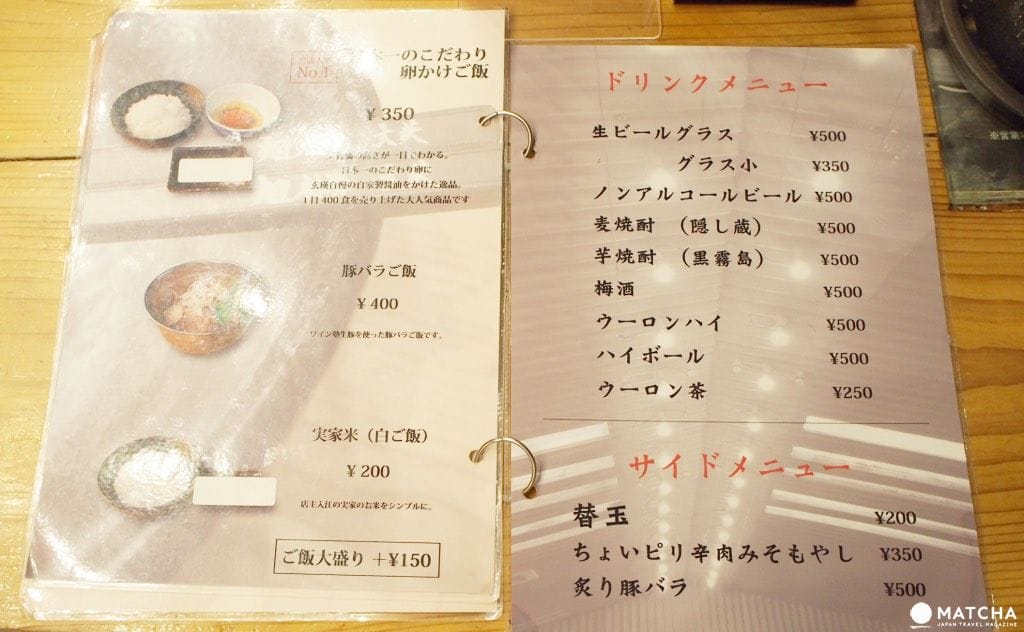 No.1
一のこだわり
卵かけご飯
¥350
高さが一目でわかる。
日本一のこだわり卵に
玄瑛自慢の自家製醤油をかけた逸品。
1日400食を売り上げた大人気商品です
豚バラご飯
¥400
ワイン塾生豚を使った豚バラご飯です。
実家米（白ご飯）
¥200
店主入江の実家のお米をシンプルに。
ご飯大盛り +¥150
ドリンクメニュー
生ビールグラス ¥500
グラス小 ¥350
ノンアルコールビール ¥500
麦焼酎 （隠し蔵） ¥500
芋焼酎 （黒霧島） ¥500
梅酒 ¥500
ウーロンハイ ¥500
ハイボール ¥500
ウーロン茶 ¥250
サイドメニュー
替玉 ¥200
ちょいピリ辛肉みそもやし ¥350
炙り豚バラ ¥500
MATCHA
JAPAN TRAVEL MAGAZINE